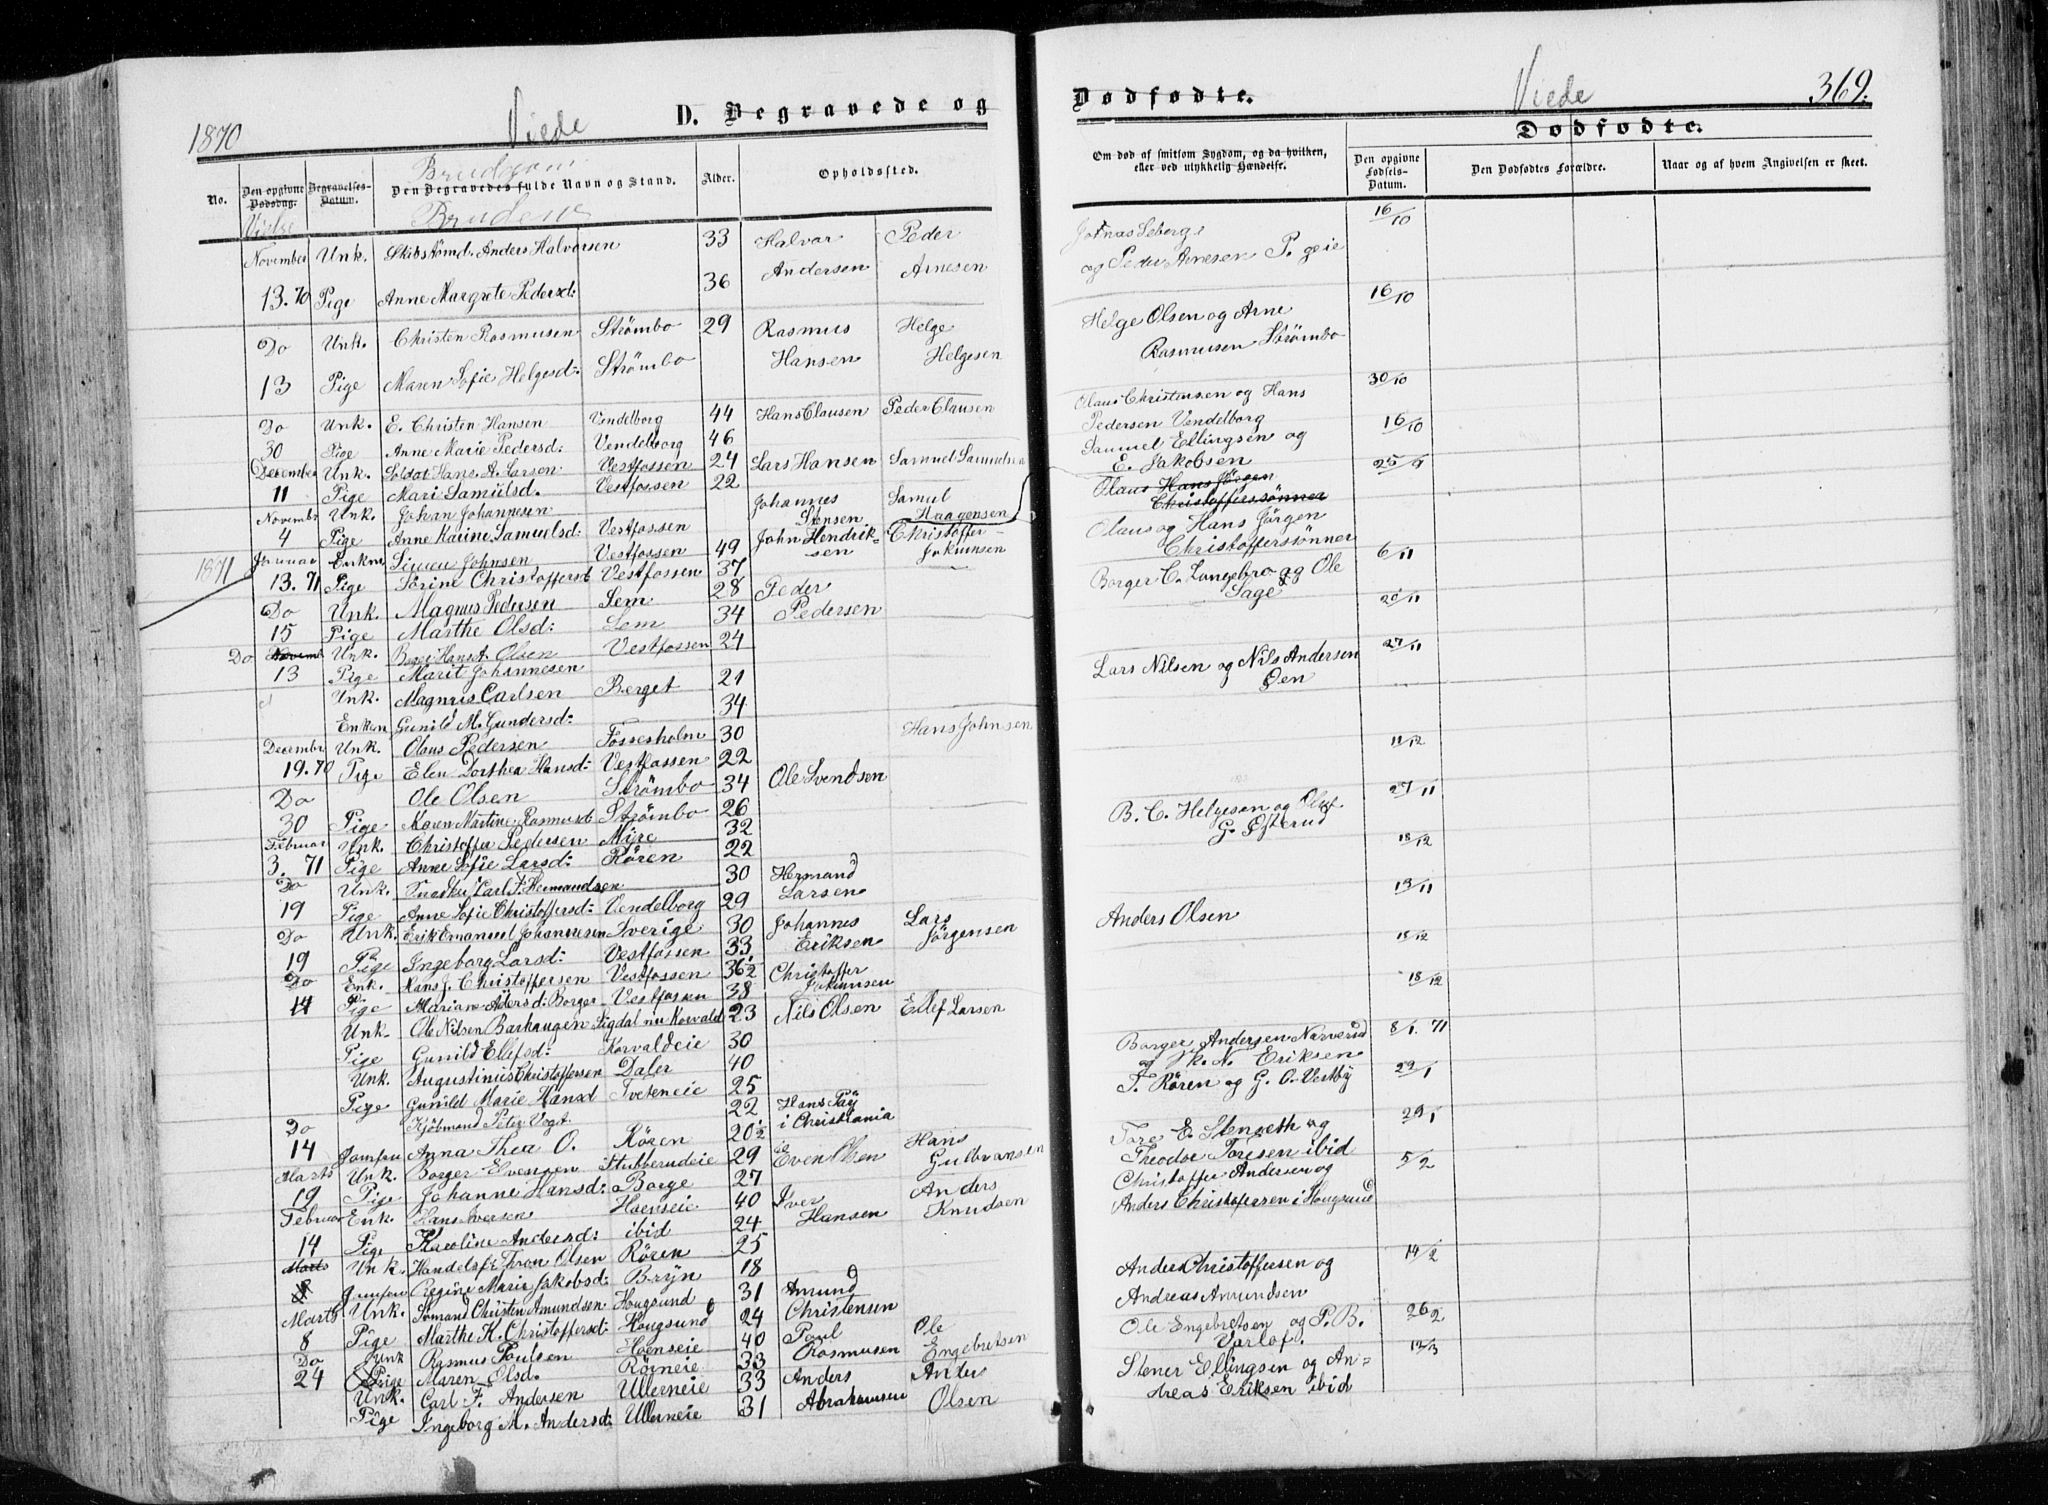 1870
Viede D. Begravede og
Dødfødte. Viede 369.
No.
Den opgivne Dødsdag.
Vielse
Begravelses-Datum.
Brudgom
Den Begravedes fulde Navn og Stand.
Brudene
Alder.
Opholdssted.
Om død af smitsom Sygdom, og da hvilken, eller ved ulykkelig Hændelse.
Dødfødte.
Den opgivne Fødsels-Datum.
Den Dødfødtes Forældre.
Naar og af hvem Angivelsen er skeet.
November Unk. Skibstømd. Anders Halvorsen 33 Halvor Andersen Peder Arnesen
13. 70 Pige Anne Margrete Pedersd: 36
Do Unk. Christen Rasmusen Strømbo 29 Rasmus Hansen Helge Helgesen
13 Pige Maren Sofie Helgesd: Strømbo
Do Unk. E. Christen Hansen Vendelborg 44 Hans Clausen Peder Clausen
30 Pige Anne Marie Pedersd: Vendelborg 46
December Unk. Soldat Hans A. Larsen Vestfossen 24 Lars Hansen Samuel Samuelsen
11 Pige Mari Samuelsd. Vestfossen 22
Novembr Unk. Johan Johannesen Johannes Stensen Samuel Haagensen
4 Pige Anne Karine Samuelsd: Vestfossen
1871 Januar Enkm Simen Johnsen Vestfossen 49 John Hendriksen Christoffer Jokumsen
13. 71 Pige Sørine Christoffersd Vestfossen 37
Do Unk. Magnus Pedersen Sem 28 Peder Pedersen
15 Pige Marthe Olsd: Sem 34
Do Novemb Unk. Hans A. Olsen Vestfossen 24
13 Pige Marit Johannesen
Unk. Magnus Carlsen Berget 21
Enken Gunild M. Gundersd: 34
Decembr Unk. Olaus Pedersen Fossesholm 30 Hans Johnsen
19. 70 Pige Elen Dorthea Hansd: Vestfossen 22
Do Ole Olsen Strømbo 34 Ole Svendsen
30 Pige Karen Martine Rasmusd Strømbo 26
Februar Unk. Christoffer Pedersen Myre 32
3. 71 Pige Anne Sofie Larsd: Røren 22
Do Unk. Carl F. Hermandsen 30 Hermand Larsen
19 Pige Anne Sofie Christoffersd: Vendelborg 29
Do Unk. Erik Emanuel Johannesen Sverige 30 Johannes Eriksen Lars Jørgensen
19 Pige Ingeborg Larsd: Vestfossen 33
Do Enk. Hans J. Christoffersen Vestfossen 36½ Christoffer Jokumsen
14 Pige Mariane Vestfossen 38
Unk. Ole Nilsen Barhaugen Sigdal nu Korvald 23 Nils Olsen Ellef Larsen
Pige Gunild Ellefsd: Korvaldeie 30
Unk. Augustinius Christoffersen Daler 40
Pige Gunild Marie Hansd Tveteneie 25
Do Kjøbmand Peter Vogt 22 i Christiania
14 Jomfru Anna Thea O. Røren 20½
Marts Unk. Borger Evensen Stubberudeie 29 Even Olsen Hans Gulbransen
19 Pige Johanne Hansd: Borge 27
Februar Enk. Hans Iversen Hoenseie 40 Iver Hansen Anders Knudsen
14 Pige Karoline Andersd: ibid 24
Marts Unk. Handelsf. Thron Olsen Røren 25
8 Jomfru Regine Marie Jakobsd: Bryn 18
Marts Unk. Sømand Christen Amundsen Hougsund 31 Amund Christensen
8 Pige Marthe K. Christoffersd: Hougsund 24
Do Unk Rasmus Poulsen Hoenseie 40 Poul Rasmusen Ole Engebretsen
24 Pige Maren Olsd. Røreneie 33
Unk. Carl F. Andersen Ullerneie 33 Anders Abrahamsen Olsen
Pige Ingeborg M. Andersd: Ullerneie 31
16/10
og Peder Arnesen
Helge Olsen og Arne 16/10
Rasmusen Strømbo
Olaus Christensen og Hans 30/10
Pedersen Vendelborg
Samuel Ellingsen og 16/10
E. Jakobsen
Olaus Hans Jørgen
Christofferssønner
Olaus og Hans Jørgen
Christofferssønner
Borger C. Langebro og Ole 6/11
Sage
20/11
Lars Nilsen og Nils Andersen 27/11
Øen
11/12
B. C. Helgesen og Oluf 27/11
G. Øfterud
18/12
13/11
Anders Olsen
18/12
18/12
Borger Andersen Narverud 8/1. 71
og K. N. Eriksen
T. Røren og G. O. Vestby 29/1
Tore E. Stenseth og 29/1
Theodor Toresen ibid
Christoffer Andersen og 5/2
Anders Christofersen i Hougsund
Anders Christoffersen og 14/2
Andreas Amundsen
Ole Engebretsen og P. B. 26/2
Varlof.
Stener Ellingsen og An=
dreas Eriksen ibid